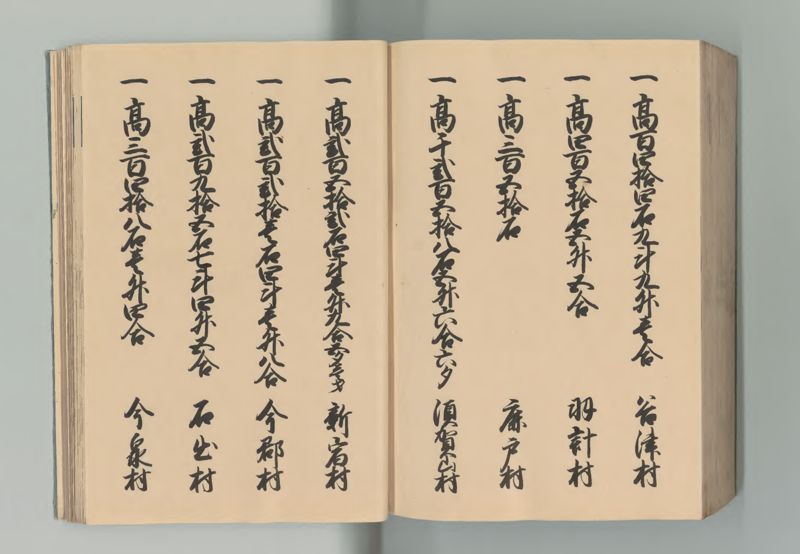 一 高百四拾四石九斗九升壱合 谷津村
一 高四百五拾石五升五合 羽計村
一 高三百五拾石 鹿戸村
一 高千弐百五拾八石五升六合六夕 須賀山村
一 高弐百五拾弐石四斗壱升九合五夕三才 新宿村
一 高弐百弐拾壱石四斗壱升八合 今郡村
一 高弐百九拾五石七斗四升五合 石出村
一 高三百四拾八石壱升四合 今泉村